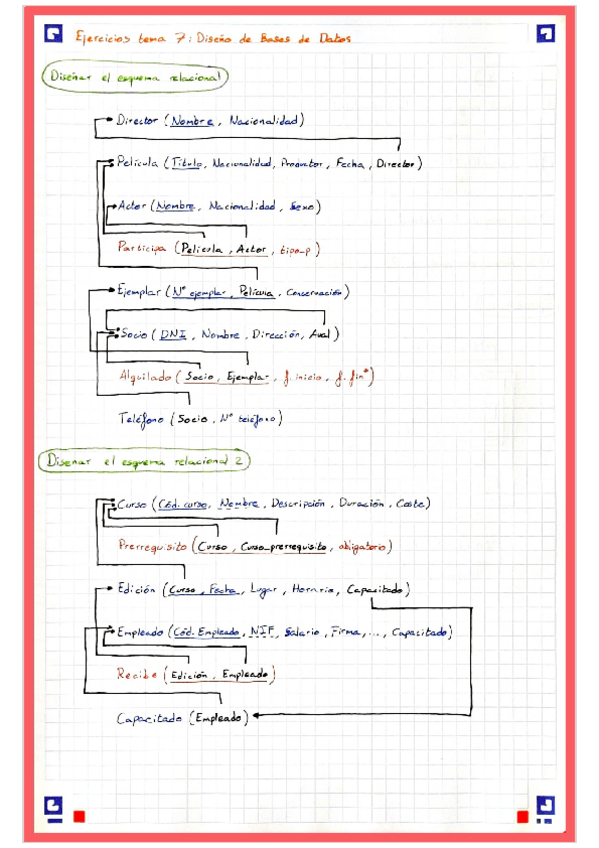 Ejercicios tema 7: Diseño de Bases de Datos
Diseñar el esquema relacional
Director (Nombre, Nacionalidad)
Película (Titulo, Nacionalidad, Productor, Fecha, Director)
Actor (Nombre, Nacionalidad, Sexo)
Participa (Película, Actor, tipo_p)
Ejemplar (Nº ejemplar, Película, Conservación)
Socio (DNI, Nombre, Dirección, Aval)
Alquilado (Socio, Ejemplar, f. inicio, f. fin*)
Teléfono (Socio, Nº teléfono)
Diseñar el esquema relacional 2
Curso (Cód. curso, Nombre, Descripción, Duración, Coste)
Prerrequisito (Curso, Curso_prerrequisito, obligatorio)
Edición (Curso, Fecha, Lugar, Horario, Capacitado)
Empleado (Cód. Empleado, NIF, Salario, Firma, ..., Capacitado)
Recibe (Edición, Empleado)
Capacitado (Empleado)